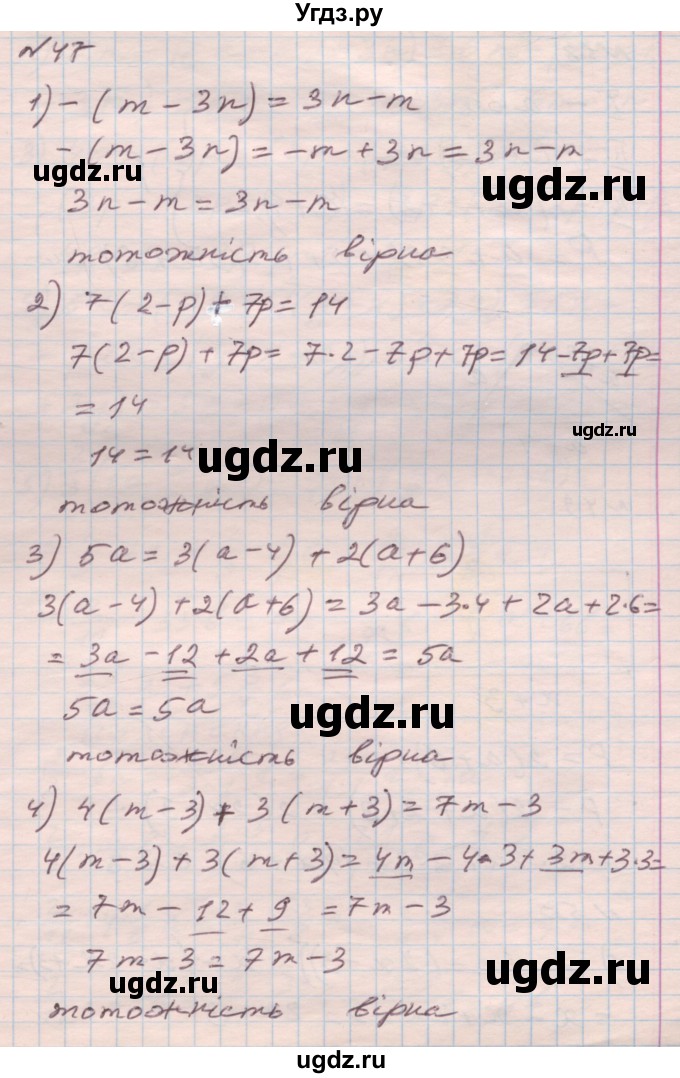 Угдз.ру
№47
1) - (m - 3n) = 3n - m
- (m - 3n) = -m + 3n = 3n - m
ugdz.ru
ugdz.ru
3n - m = 3n - m
тотожність вірна
2) 7(2-p) + 7p = 14
7(2-p) + 7p = 7·2 - 7p + 7p = 14 - 7p + 7p =
= 14
ugdz.ru
14 = 14
ugdz.ru
тотожність вірна
3) 5a = 3(a-4) + 2(a+6)
3(a-4) + 2(a+6) = 3a - 3·4 + 2a + 2·6 =
= 3a - 12 + 2a + 12 = 5a
5a = 5a
ugdz.ru
тотожність вірна
4) 4(m-3) + 3(m+3) = 7m - 3
4(m-3) + 3(m+3) = 4m - 4·3 + 3m + 3·3 =
= 7m - 12 + 9 = 7m - 3
7m - 3 = 7m - 3
ugdz.ru
ugdz.ru
тотожність вірна
ugdz.ru